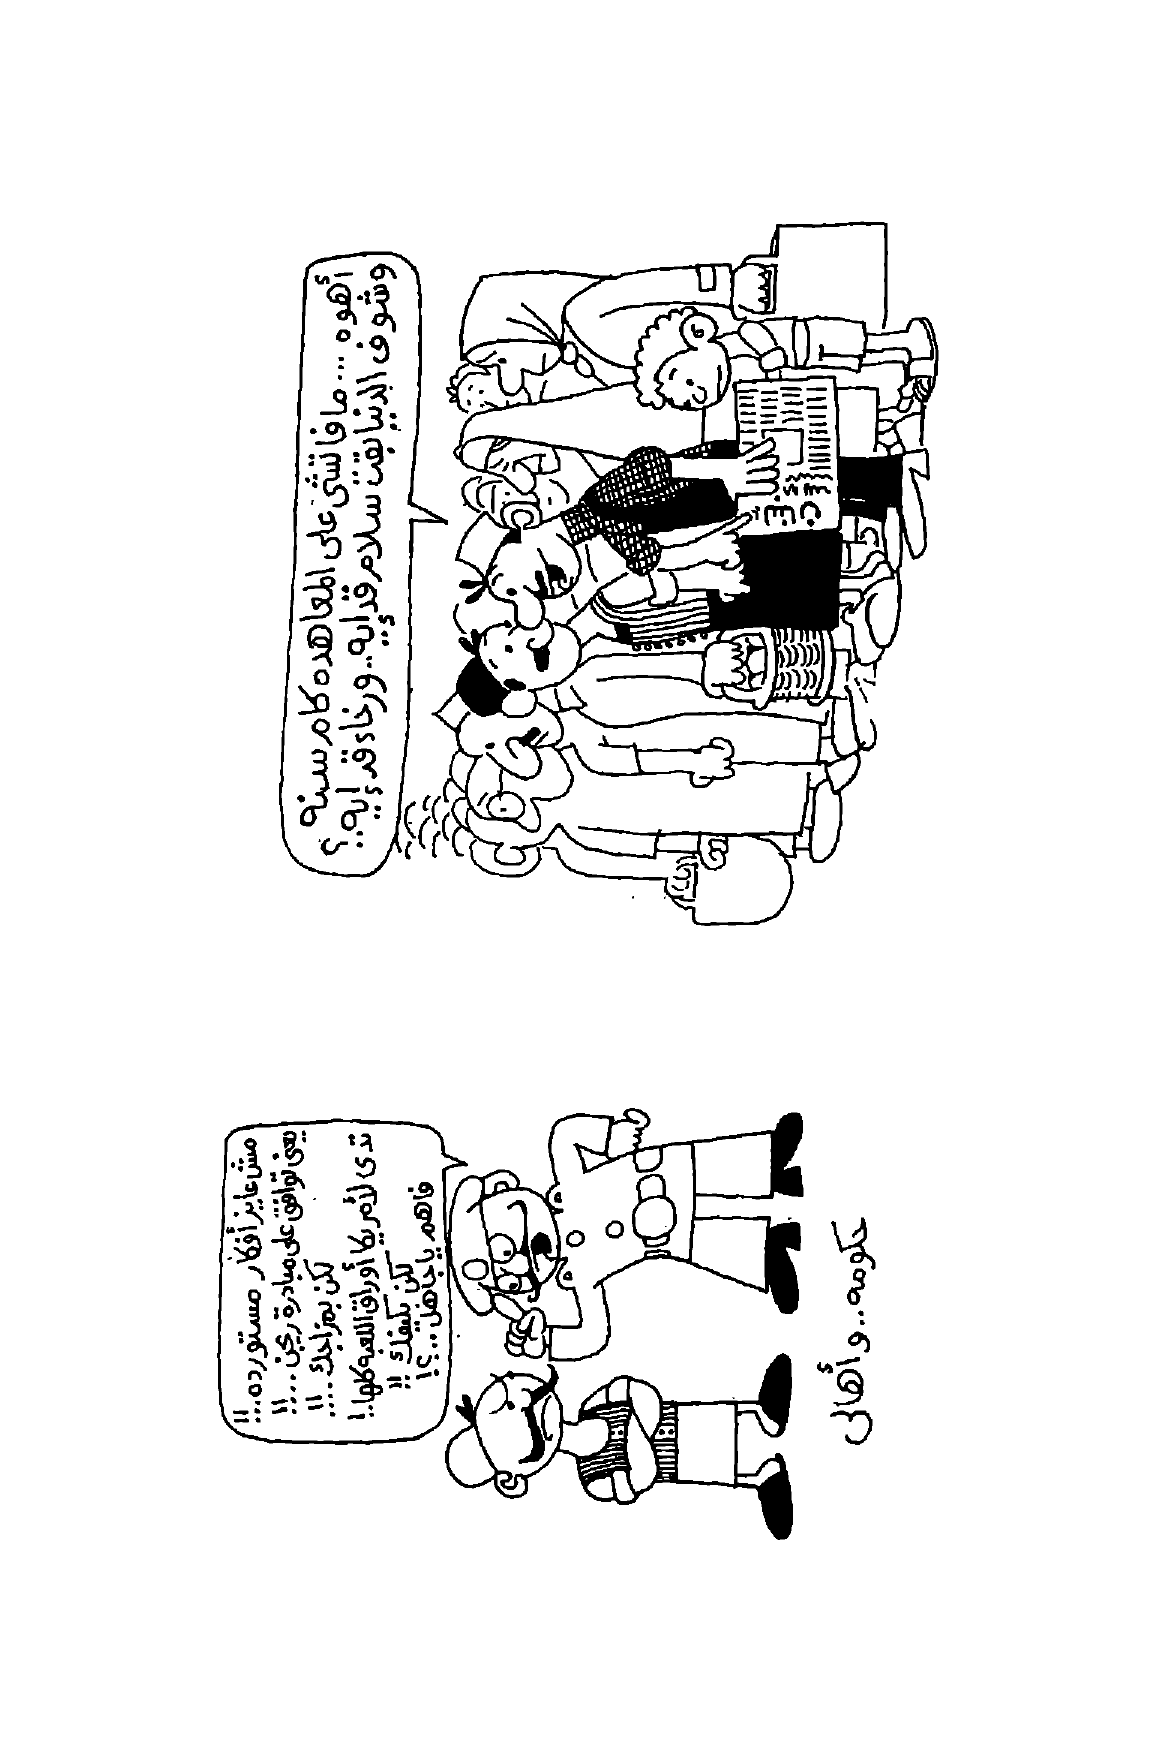 أهوه ... ما فاتشى على المعاهده كام سنه
وشوف الدنيا بقت سلام قد إيه .. ورخاء قد إيه ..
؟
مش عايز أفكار مستورده ..!!
يعنى توافق على مبادرة ريجن ...!!
لكن بمزاجك ....!!
تدى لأمريكا أوراق اللعبه كلها ..!
لكن بكيفك !!
فاهم يا جاهل ...؟!
حكومه .. وأهالى